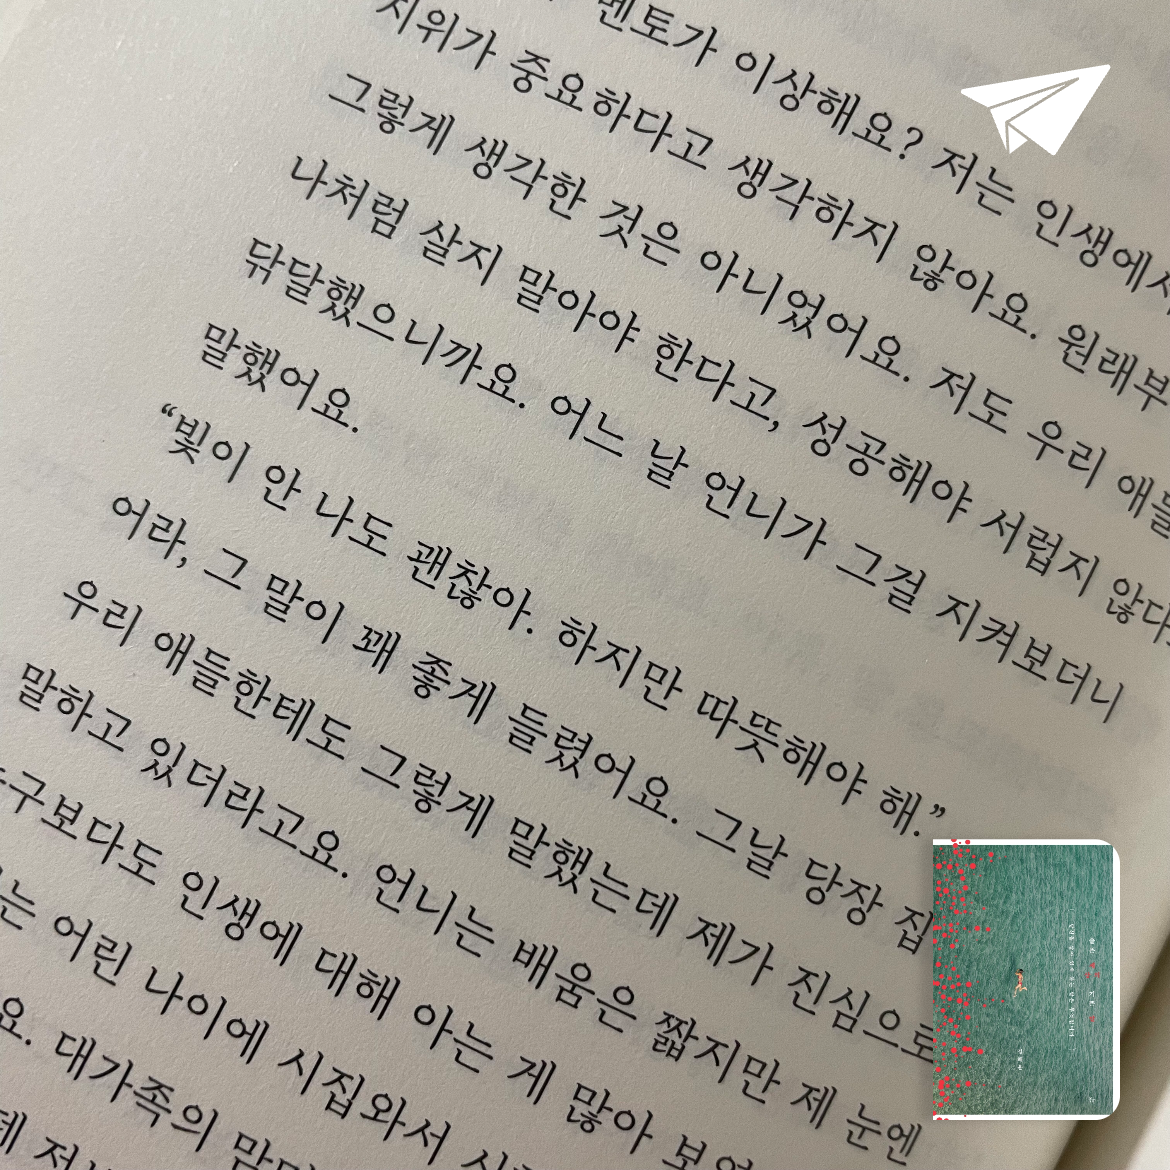 멘토가 이상해요? 저는 인생에서
지위가 중요하다고 생각하지 않아요. 원래부
그렇게 생각한 것은 아니었어요. 저도 우리 애들
나처럼 살지 말아야 한다고, 성공해야 서럽지 않다
닦달했으니까요. 어느 날 언니가 그걸 지켜보더니
말했어요.
“빛이 안 나도 괜찮아. 하지만 따뜻해야 해.”
어라, 그 말이 꽤 좋게 들렸어요. 그날 당장 집
우리 애들한테도 그렇게 말했는데 제가 진심으로
말하고 있더라고요. 언니는 배움은 짧지만 제 눈엔
구보다도 인생에 대해 아는 게 많아 보
는 어린 나이에 시집와서
요. 대가족의 맏
데